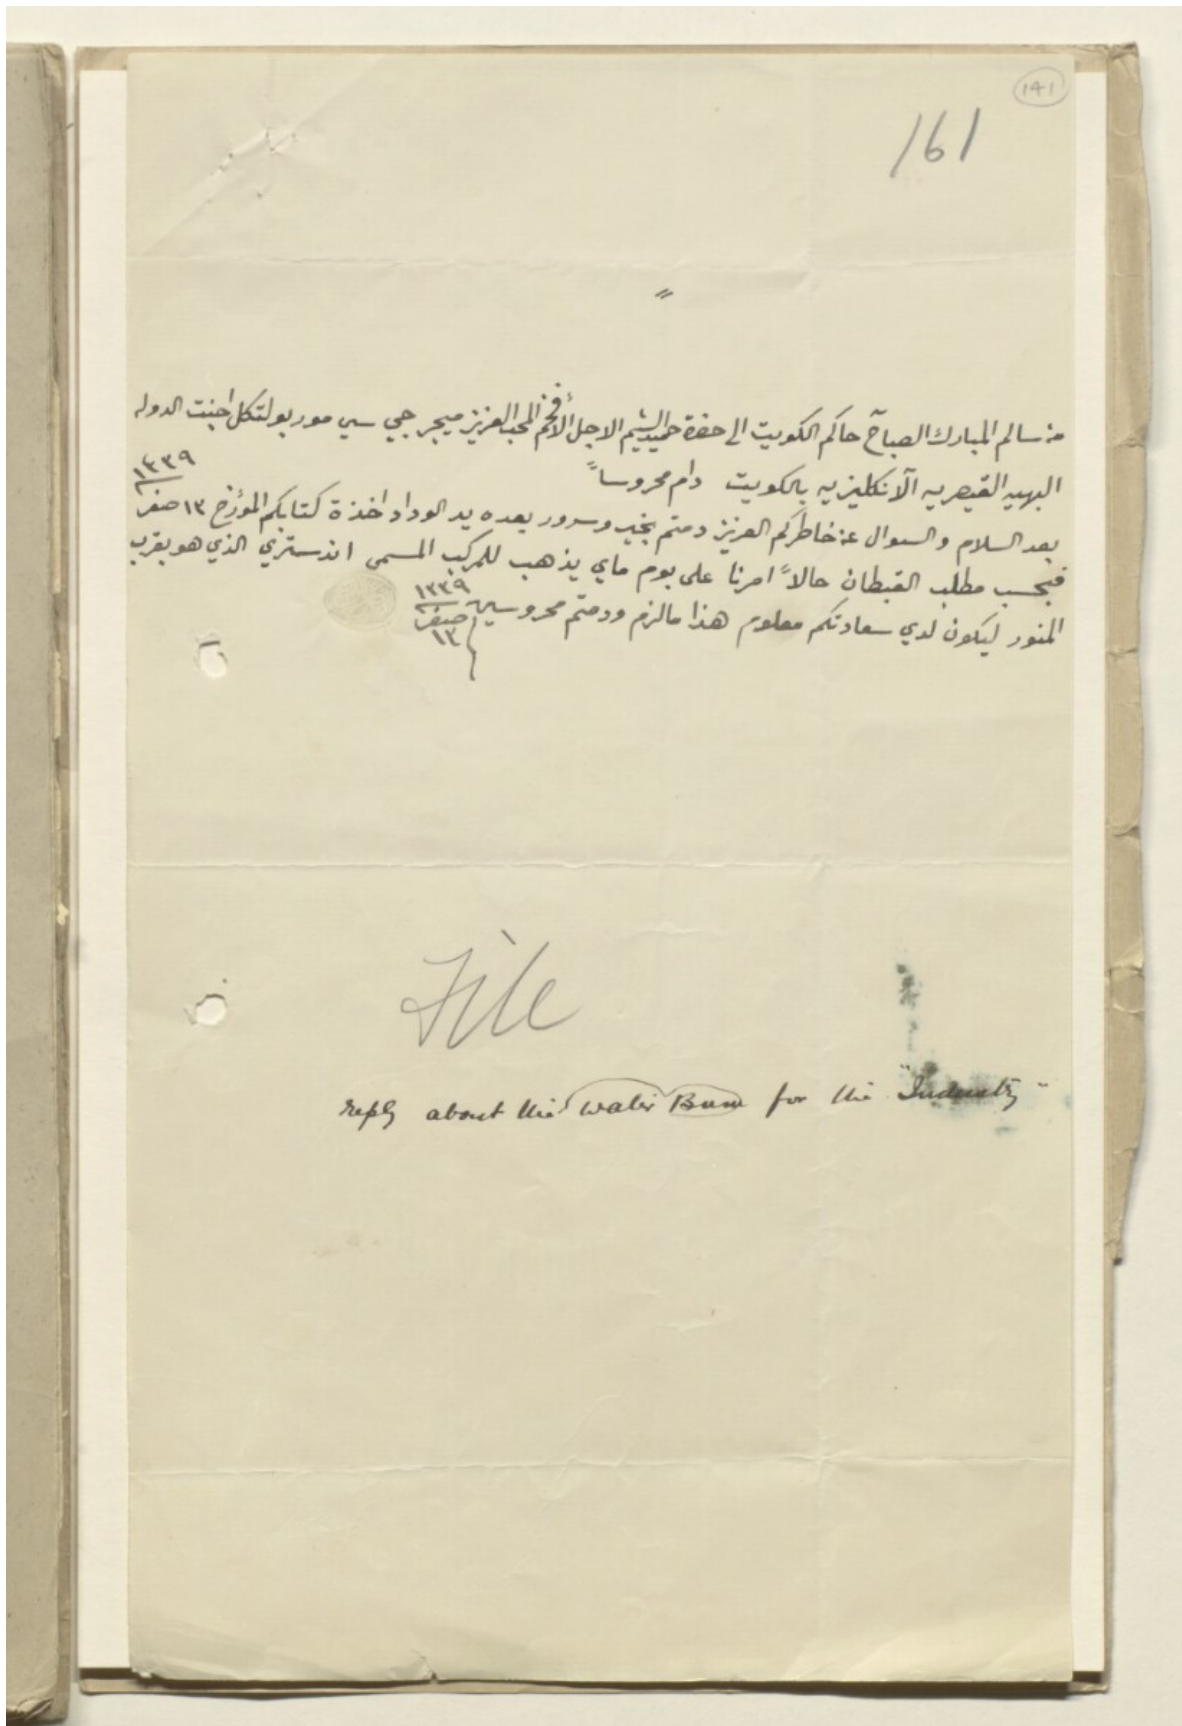 141
161
من سالم المبارك الصباح حاكم الكويت الى حضرة حميد الشيم الاجل الأفخم المحب العزيز ميجر جي سي مور بولتكل اجنت الدوله
البهيه القيصريه الانكليزيه بالكويت دام محروساً
بعد السلام والسوال عن خاطركم العزيز دمتم بخير وسرور بعده يد الوداد اخذة كتابكم المؤرخ ١٣ صفر ١٣٣٩
فبحسب مطلب القبطان حالاً امرنا على بوم ماي يذهب للمركب المسمى اندستري الذي هو بقرب
المنور ليكون لدي سعادتكم معلوم هذا مالزم ودمتم محروسين
١٣ صفر ١٣٣٩
File
reply about the water Bum for the "Industry"